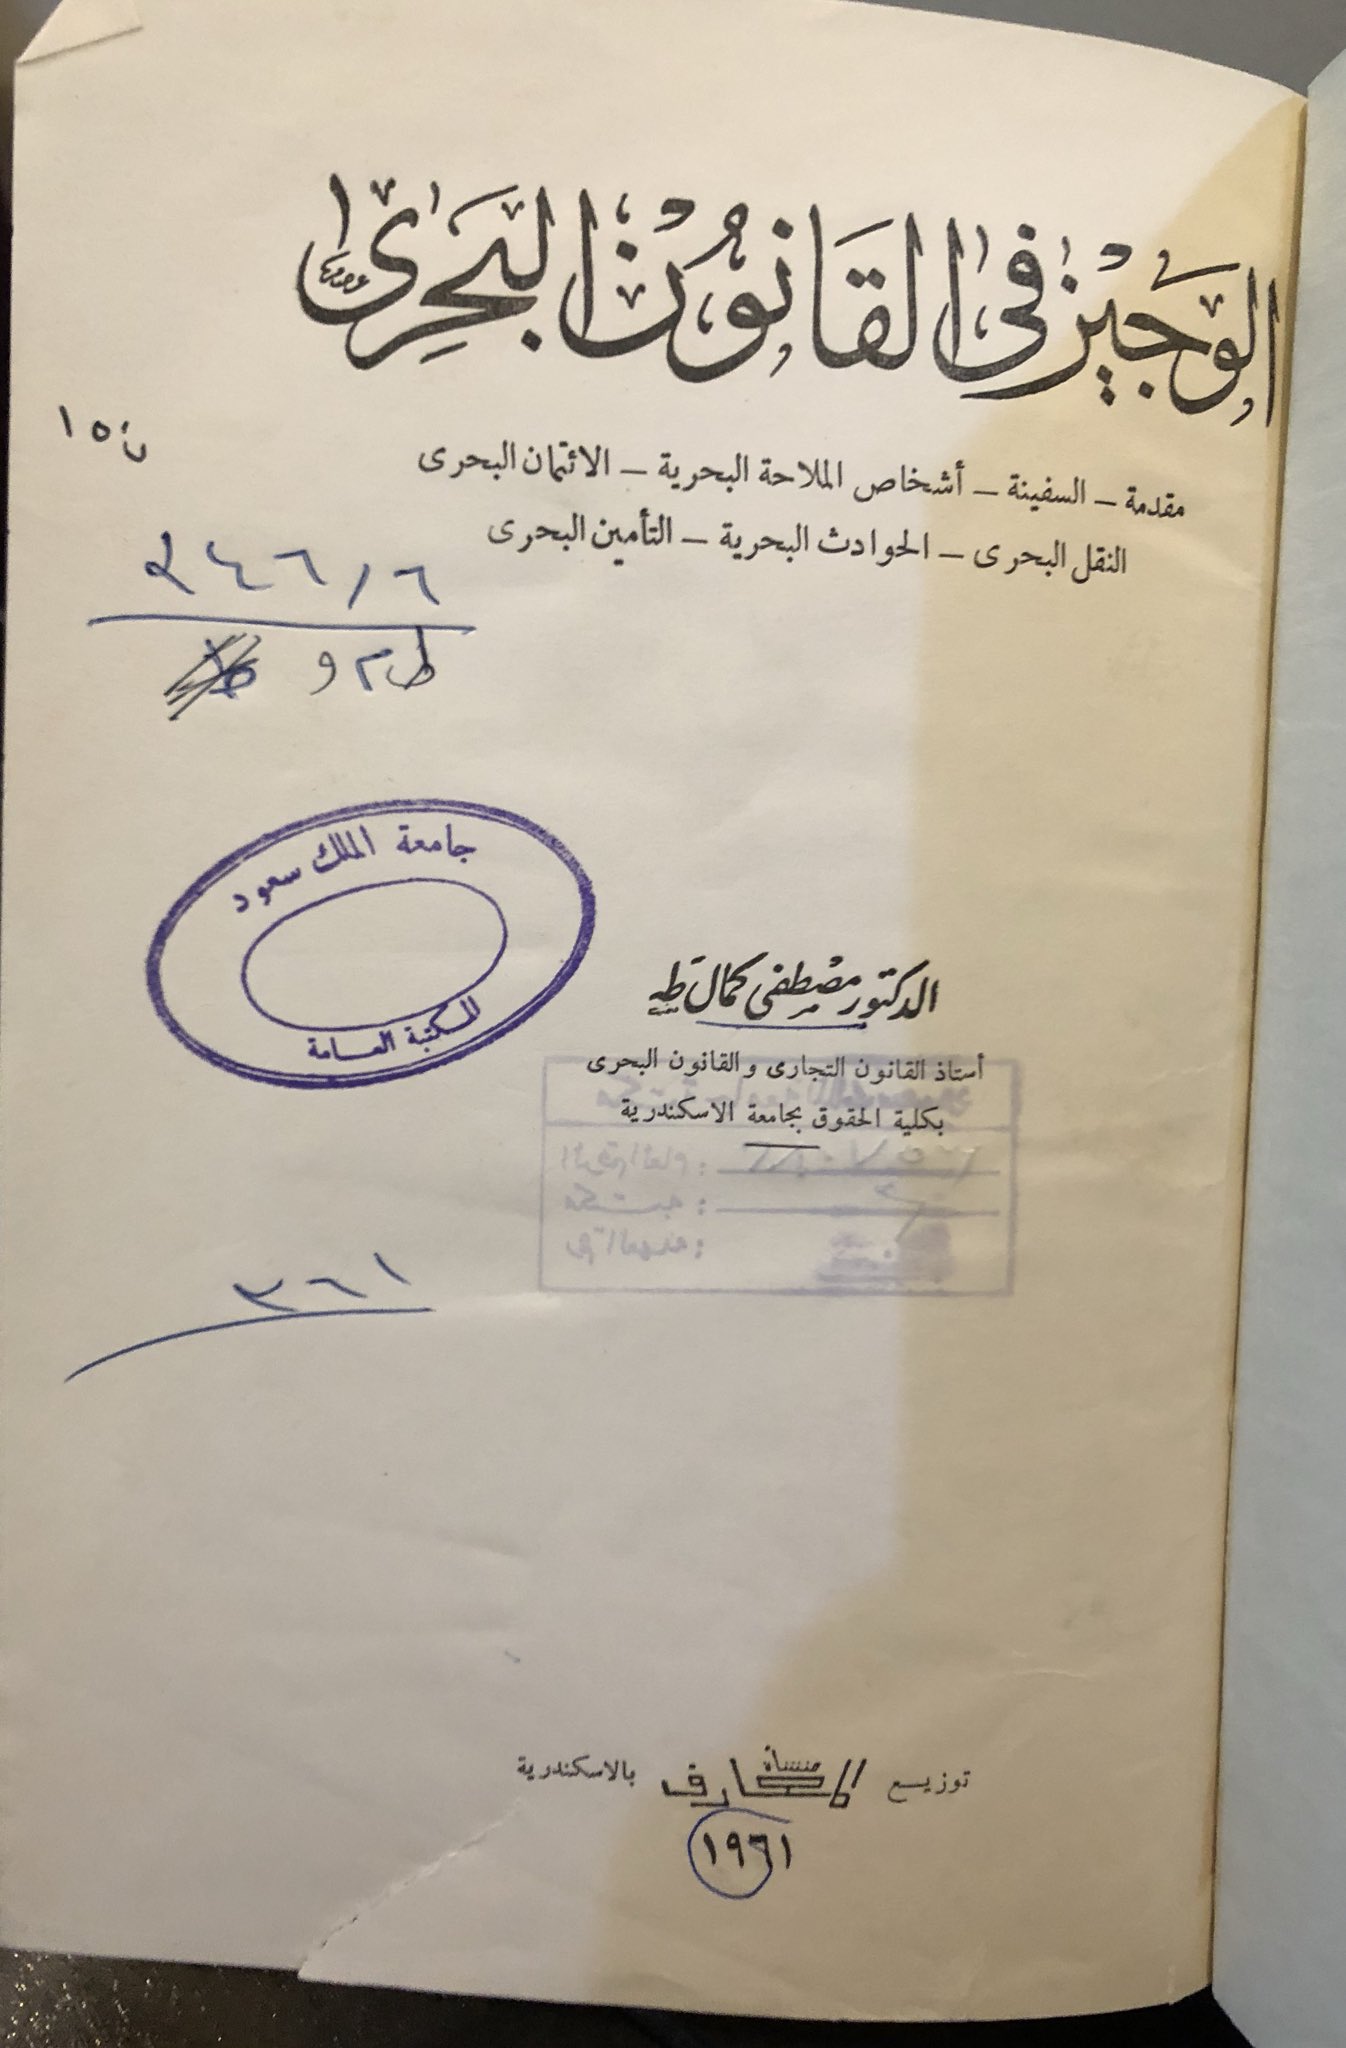 الوَجيز في القَانونْ البَحرِىّ
مقدمة – السفينة – أشخاص الملاحة البحرية – الائتمان البحرى
النقل البحرى – الحوادث البحرية – التأمين البحرى
٢٤٦/٦
ط م و
جامعة الملك سعود
المكتبة العامة
الدكتور مصطفى كمال طه
أستاذ القانون التجارى والقانون البحرى
بكلية الحقوق بجامعة الاسكندرية
الرقم العام :
مكتبة :
٣٦١
توزيع منشأة المعارف بالاسكندرية
١٩٦١